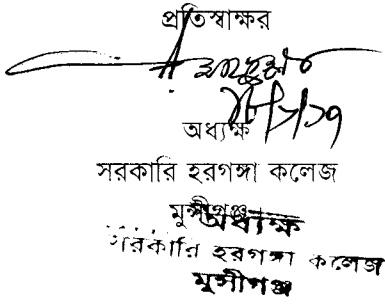 প্রতিস্বাক্ষর
অধ্যক্ষ
সরকারি হরগঙ্গা কলেজ
মুন্সীগঞ্জ
অধ্যক্ষ
সরকারি হরগঙ্গা কলেজ
মুন্সীগঞ্জ